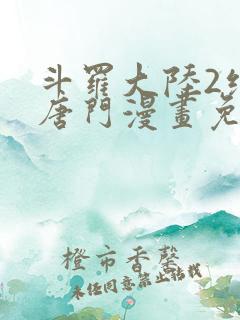 斗羅大陸2
唐門漫畫免
橙市香馨
未任同意禁止转载